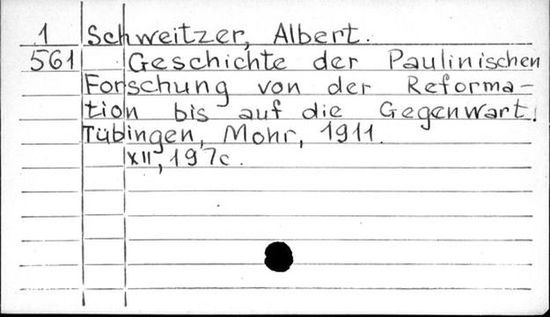 1 Schweitzer, Albert.
561 Geschichte der Paulinischen
Forschung von der Reforma-
tion bis auf die Gegenwart.
Tübingen, Mohr, 1911.
XII, 197c.